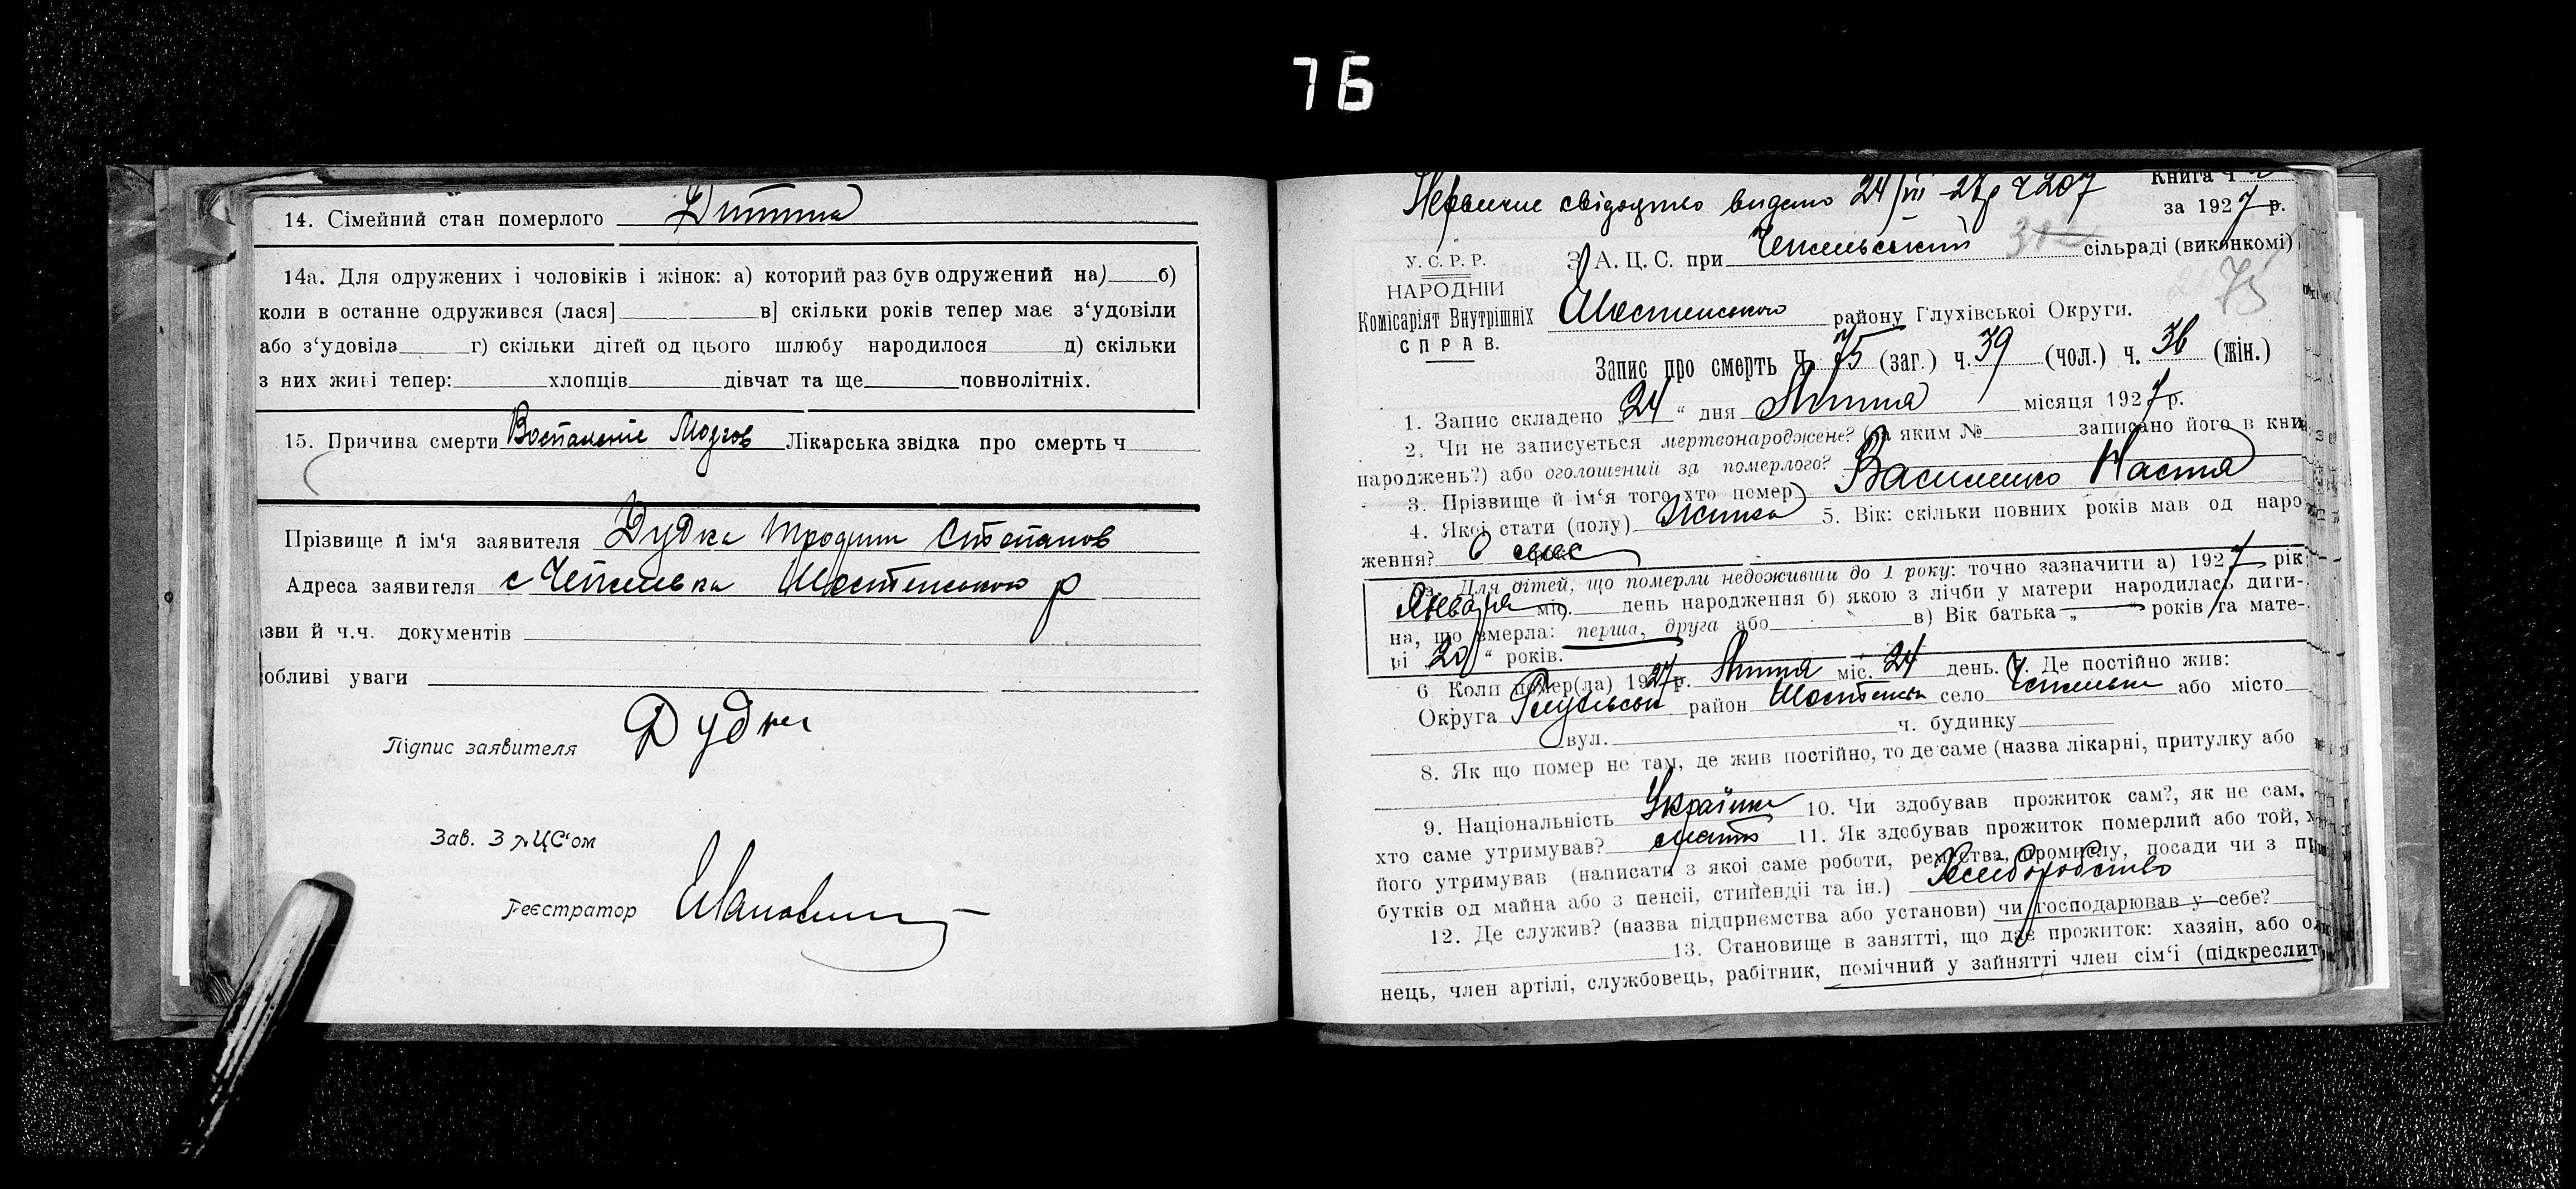 76
14. Сімейний стан померлого Дитина
14а. Для одружених і чоловіків і жінок: а) которий раз був одружений на) б)
коли в останне одружився (лася] в] скільки років тепер має з‘удовіли
або з‘удовіла г) скільки дітей од цього шлюбу народилося д) скільки
з них живі тепер: хлопців дівчат та ще повнолітніх.
15. Причина смерти Воспаление Мозгов Лікарська звідка про смерть ч
Прізвище й ім‘я заявителя Дудка Степанов
Адреса заявителя с Чепліевка Шостенського р
зви й ч.ч. документів
обливі уваги
Підпис заявителя Дудка
Зав. ЗАЦС‘ом
Реєстратор
свідоцтво видано 24/VII-27р ч 207
Книга ч
за 1927 р.
У. С. Р. Р.
З. А. Ц. С. при сільраді (виконкомі)
75
НАРОДНІЙ
Комісаріят Внутрішніх
С П Р А В.
Шостенського району Глухівської Округи.
Запис про смерть ч. 75 (заг.) ч. 39 (чол.) ч. 36 (жін.)
1. Запис складено „24“ дня Липня місяця 1927 р.
2. Чи не записується мертвонароджене? (за яким № записано його в кни
народжень?) або оголошений за померлого?
3. Прізвище й ім‘я того хто помер) Василенко Настя
4. Якої стати (полу) Жінка 5. Вік: скільки повних років мав од наро
ження? 6
Для дітей, що померли недоживши до 1 року: точно зазначити а) 1927 рік
Января міс. день народження б) якою з лічби у матери народилась дити-
на, що вмерла: перша, друга або в) Вік батька „ років та мате-
рі 20 “ років.
6 Коли помер(ла) 1927 р. Липня міс. 24 день. 7. Де постійно жив:
Округа район Шостенськ село або місто
вул. ч. будинку
8. Як що помер не там, де жив постійно, то де саме (назва лікарні, притулку або
9. Національність Українка 10. Чи здобував прожиток сам?, як не сам,
хто саме утримував? 11. Як здобував прожиток померлий або той, х
його утримував (написати з якої саме роботи, ремества, промислу, посади чи з пр
бутків од майна або з пенсії, стипендії та ін.) Хлеборобство
12. Де служив? (назва підприємства або установи) чи господарював у себе?
13. Становище в занятті, що дає прожиток: хазяін, або од
нець, член артілі, службовець, рабітник, помічний у зайнятті член сім‘і (підкреслит